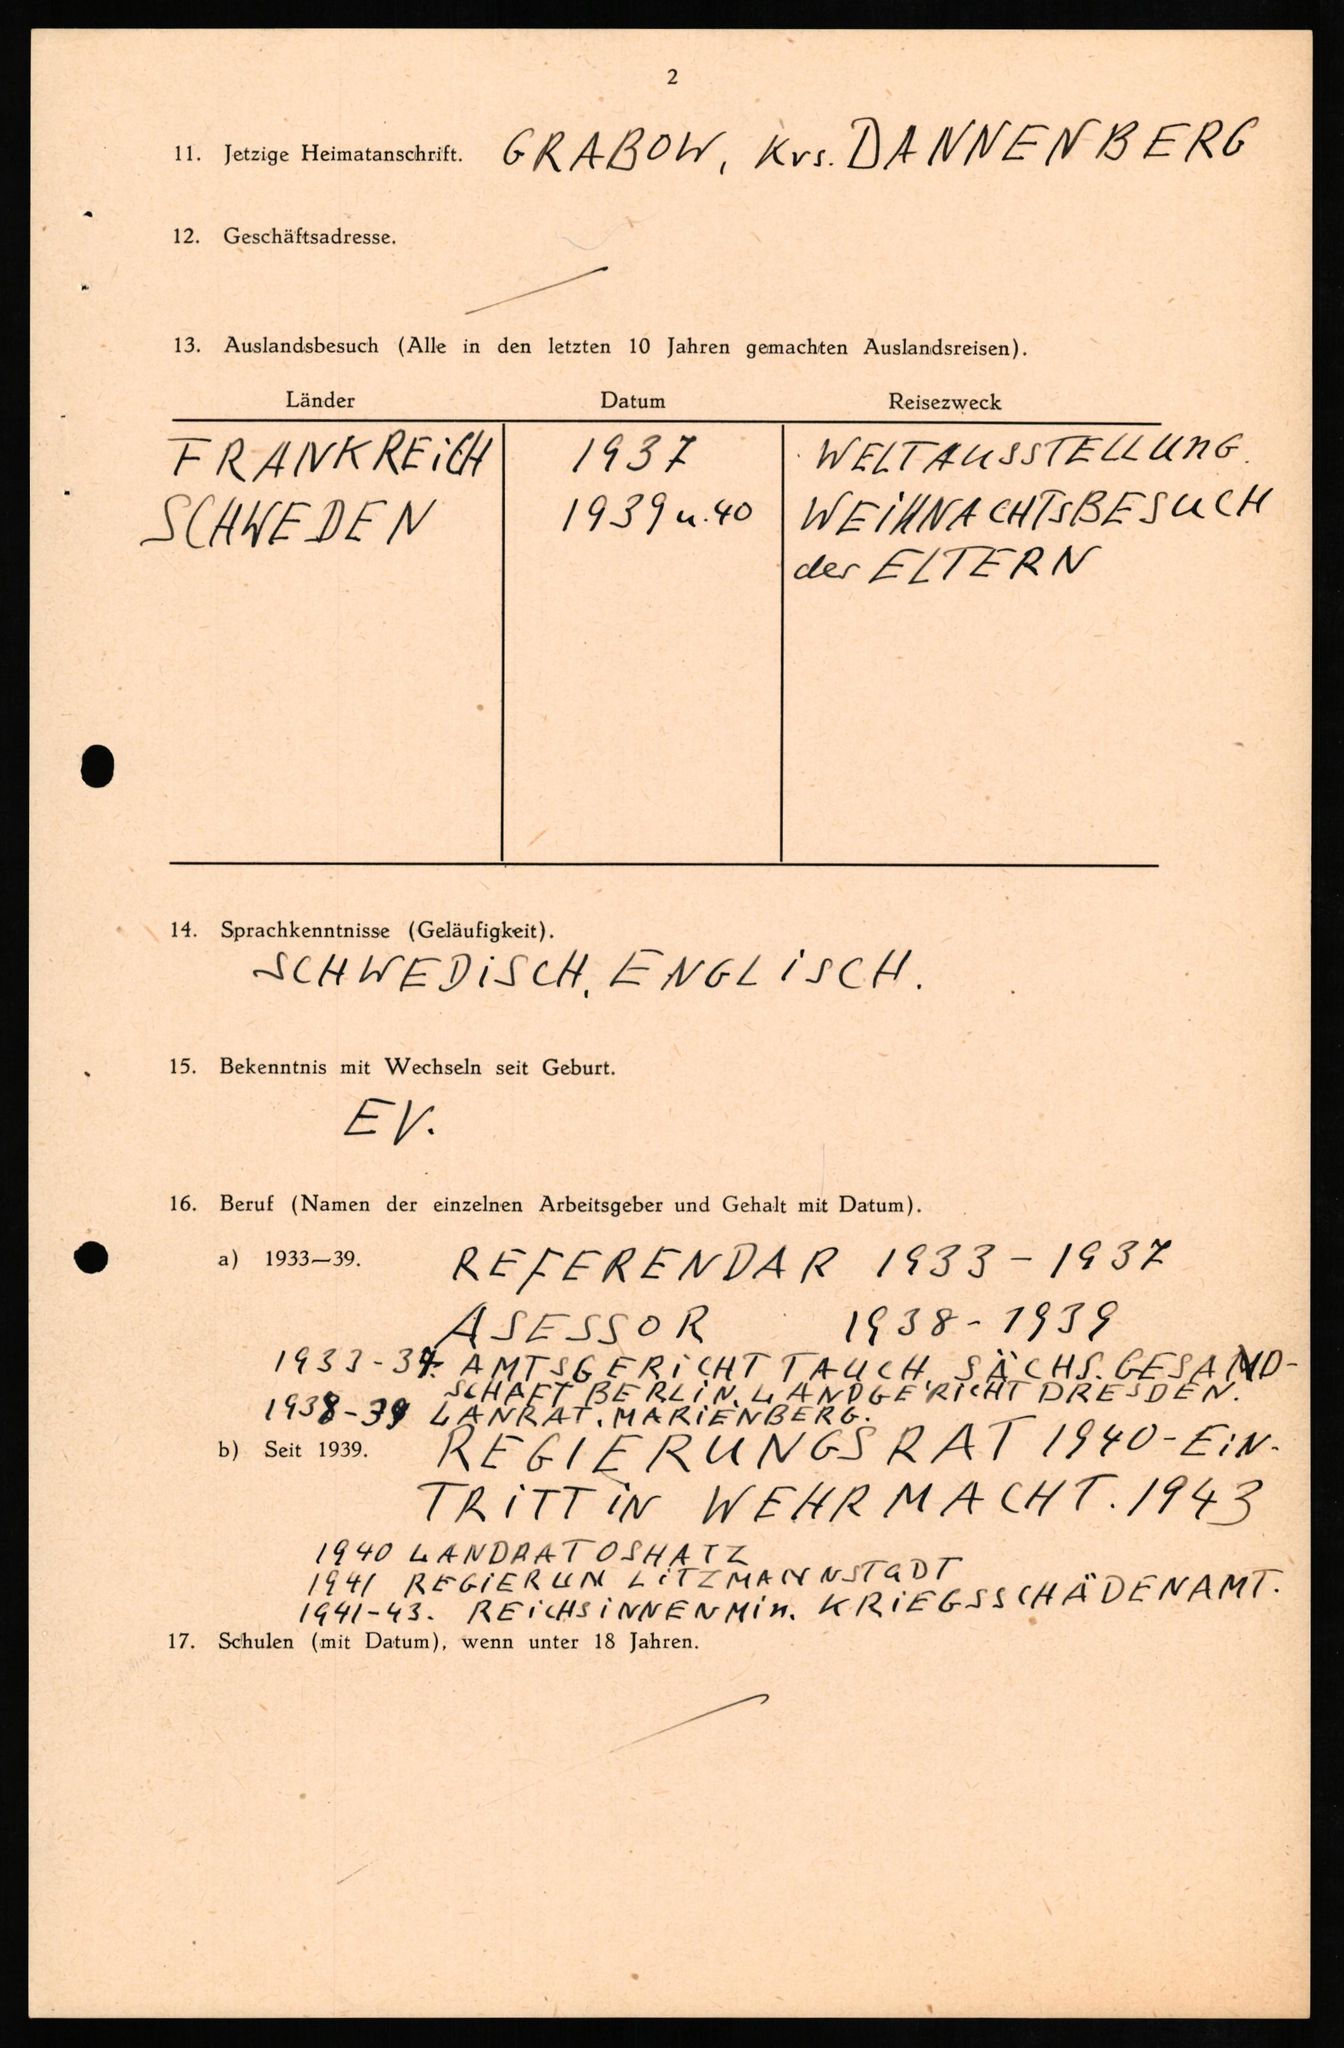 2
11. Jetzige Heimatanschrift. GRABOW, Krs. DANNENBERG
12. Geschäftsadresse.
13. Auslandsbesuch (Alle in den letzten 10 Jahren gemachten Auslandsreisen).
Länder Datum Reisezweck
FRANKREICH 1937 WELTAUSSTELLUNG.
SCHWEDEN 1939 u. 40 WEIHNACHTSBESUCH
der ELTERN
14. Sprachkenntnisse (Geläufigkeit).
SCHWEDISCH, ENGLISCH.
15. Bekenntnis mit Wechseln seit Geburt.
EV.
16. Beruf (Namen der einzelnen Arbeitsgeber und Gehalt mit Datum).
a) 1933—39. REFERENDAR 1933 - 1937
ASESSOR 1938 - 1939
1933-37. AMTSGERICHT TAUCH, SÄCHS. GESAND-
SCHAFT BERLIN, LANDGERICHT DRESDEN.
1938-39 LANRAT, MARIENBERG.
b) Seit 1939. REGIERUNGSRAT 1940 - EIN-
TRITT IN WEHRMACHT. 1943
1940 LANDRAT OSHATZ
1941 REGIERUN LITZMANNSTADT
1941-43. REICHSINNENMIN. KRIEGSSCHÄDENAMT.
17. Schulen (mit Datum), wenn unter 18 Jahren.